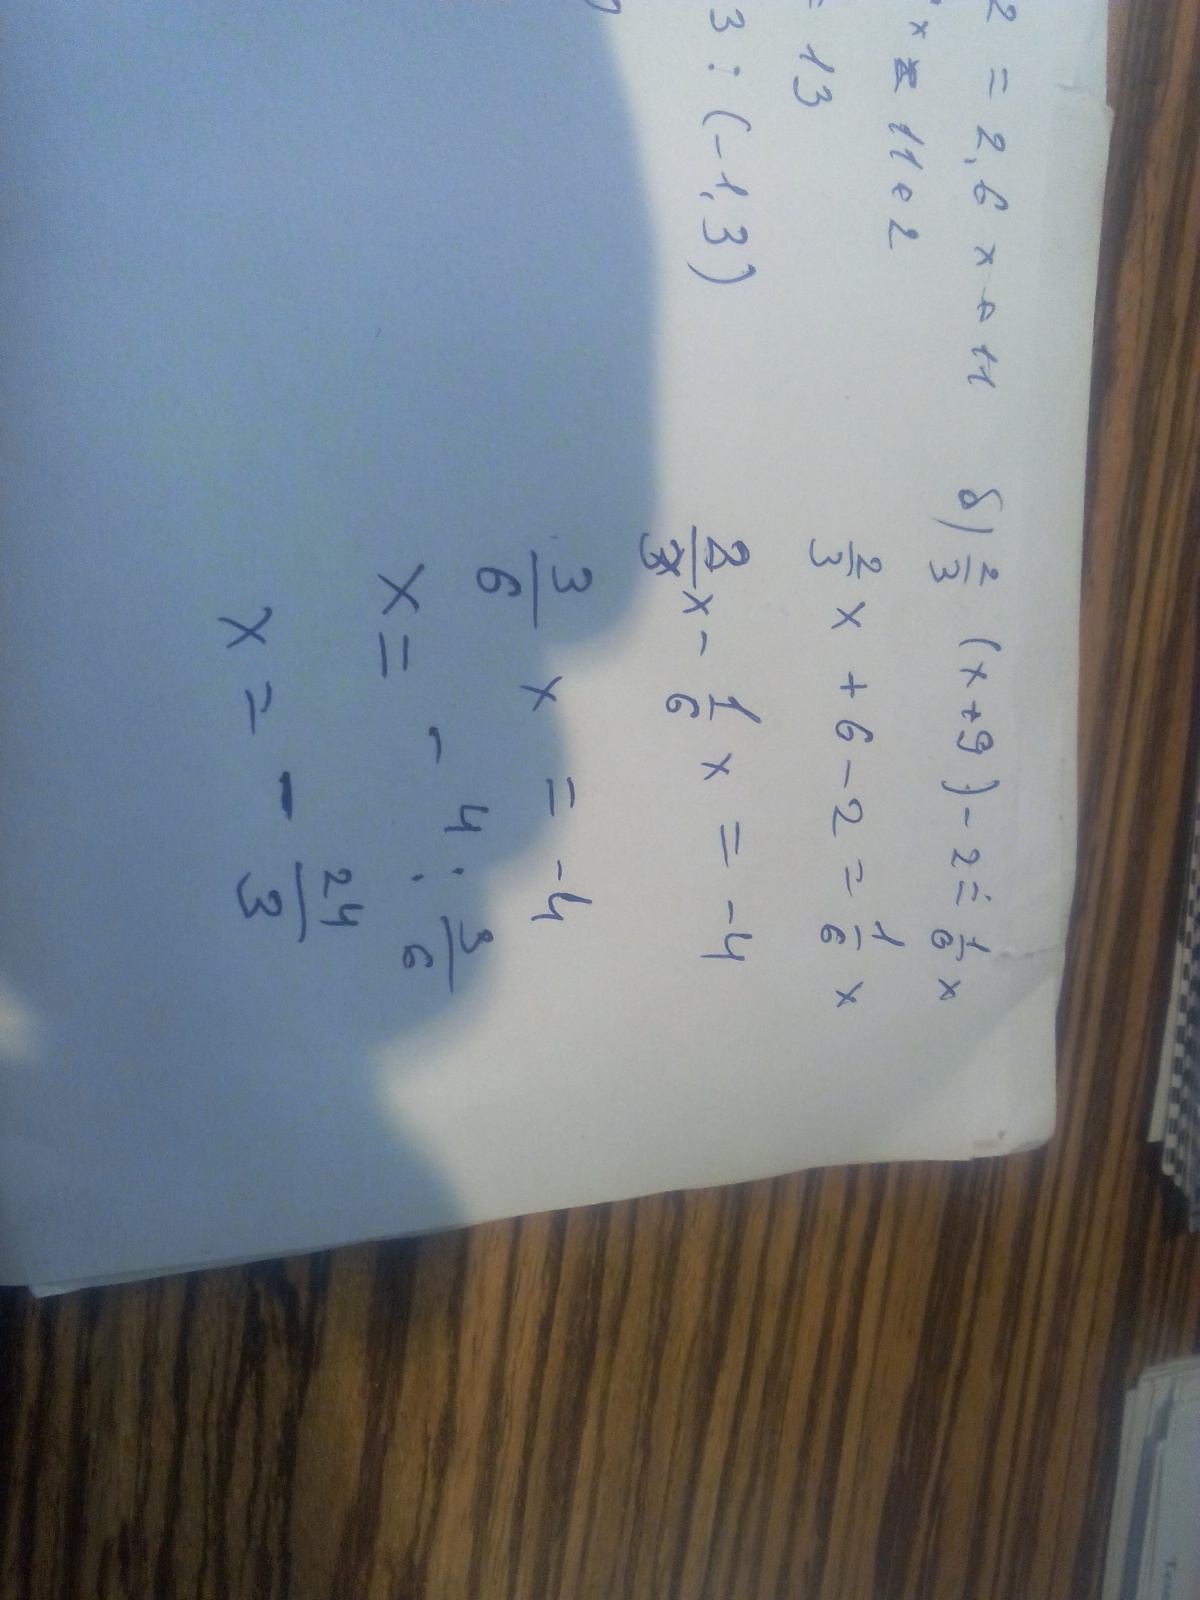 2 = 2,6 x + 11
x = 11 + 2
= 13
3 : (-1,3)
б) 2/3 (x+9) - 2 = 1/6 x
2/3 x + 6 - 2 = 1/6 x
2/3 x - 1/6 x = -4
3/6 x = -4
x = - 4 : 3/6
x = - 24/3